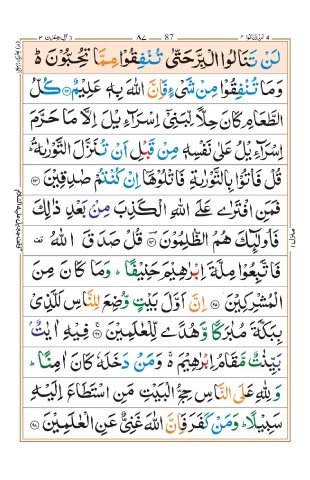 ٨٧ 87
لَنْ تَنَالُوا الْبِرَّ حَتّٰى تُنْفِقُوْا مِمَّا تُحِبُّوْنَ ؕ
وَمَا تُنْفِقُوْا مِنْ شَىْءٍ فَاِنَّ اللّٰهَ بِهٖ عَلِيْمٌ ﴿۹۲﴾ كُلُّ
الطَّعَامِ كَانَ حِلًّا لِّبَنِىْٓ اِسْرَآءِيْلَ اِلَّا مَا حَرَّمَ
اِسْرَآءِيْلُ عَلٰى نَفْسِهٖ مِنْ قَبْلِ اَنْ تُنَزَّلَ التَّوْرٰىةُ ؕ
قُلْ فَاْتُوْا بِالتَّوْرٰىةِ فَاتْلُوْهَاۤ اِنْ كُنْتُمْ صٰدِقِيْنَ ﴿۹۳﴾
فَمَنِ افْتَرٰى عَلَى اللّٰهِ الْكَذِبَ مِنْۢ بَعْدِ ذٰلِكَ
فَاُولٰٓئِكَ هُمُ الظّٰلِمُوْنَ ﴿۹۴﴾ قُلْ صَدَقَ اللّٰهُ
فَاتَّبِعُوْا مِلَّةَ اِبْرٰهِيْمَ حَنِيْفًا ؕ وَمَا كَانَ مِنَ
الْمُشْرِكِيْنَ ﴿۹۵﴾ اِنَّ اَوَّلَ بَيْتٍ وُّضِعَ لِلنَّاسِ لَلَّذِىْ
بِبَكَّةَ مُبٰرَكًا وَّهُدًى لِّلْعٰلَمِيْنَ ﴿۹۶﴾ فِيْهِ اٰيٰتٌۢ
بَيِّنٰتٌ مَّقَامُ اِبْرٰهِيْمَ ۚ وَمَنْ دَخَلَهٗ كَانَ اٰمِنًا ؕ
وَلِلّٰهِ عَلَى النَّاسِ حِجُّ الْبَيْتِ مَنِ اسْتَطَاعَ اِلَيْهِ
سَبِيْلًا ؕ وَمَنْ كَفَرَ فَاِنَّ اللّٰهَ غَنِىٌّ عَنِ الْعٰلَمِيْنَ ﴿۹۷﴾